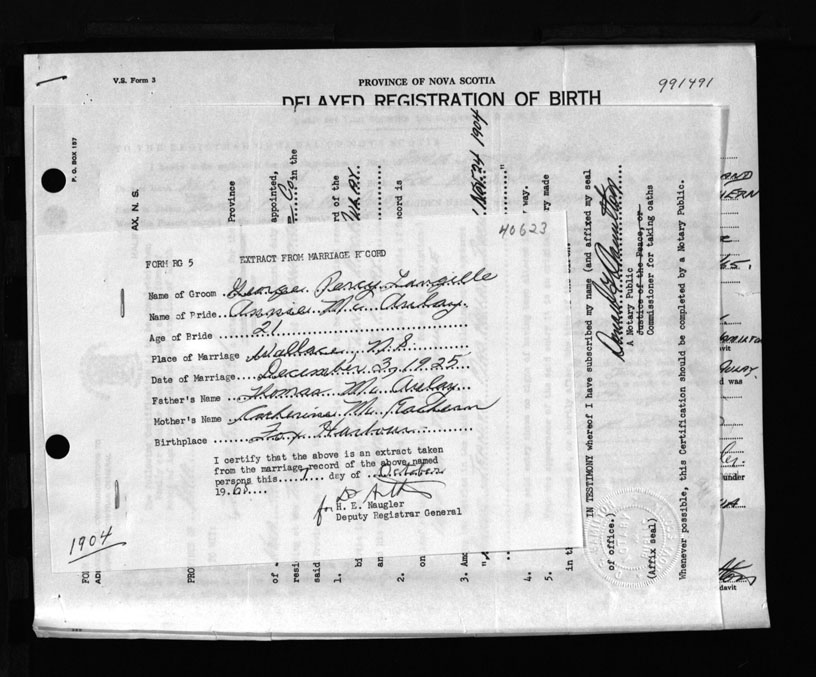 V.S. Form 3
PROVINCE OF NOVA SCOTIA
991491
DELAYED REGISTRATION OF BIRTH
P. O. BOX 157
AX, N. S.
Province
appointed,
Co
in the
rd of the
cord is
Nov. 24 1904
way.
ry made
40623
FORM RG 5 EXTRACT FROM MARRIAGE RECORD
Name of Groom George Percy Langille
Name of Bride Annie McAulay
Age of Bride 21
Place of Marriage Wallace N S
Date of Marriage December 3, 1925
Father's Name Thomas McAulay
Mother's Name Catherine McEachern
Birthplace Fox Harbour
I certify that the above is an extract taken
from the marriage record of the above named
persons this day of October
19
for H. E. Naugler
Deputy Registrar General
1904
FO
ADI
PRO
of
resi
said
1. bi
an
2.
on
3. Amo
4.
5.
in th
IN TESTIMONY whereof I have subscribed my name (and affixed my seal
of office.)
A Notary Public
Justice of the Peace, or
Commissioner for taking oaths
(Affix seal)
Whenever possible, this Certification should be completed by a Notary Public.
d was
under
davit